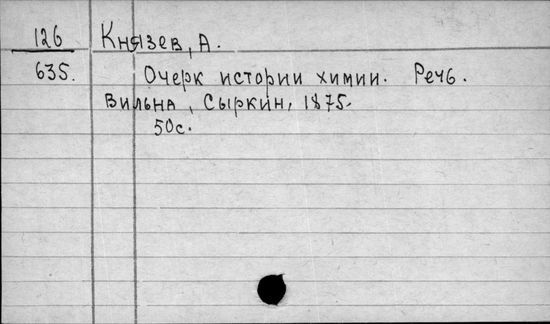 126 Князев, А.
635. Очерк истории химии. Речь.
Вильна, Сыркин, 1875.
50с.